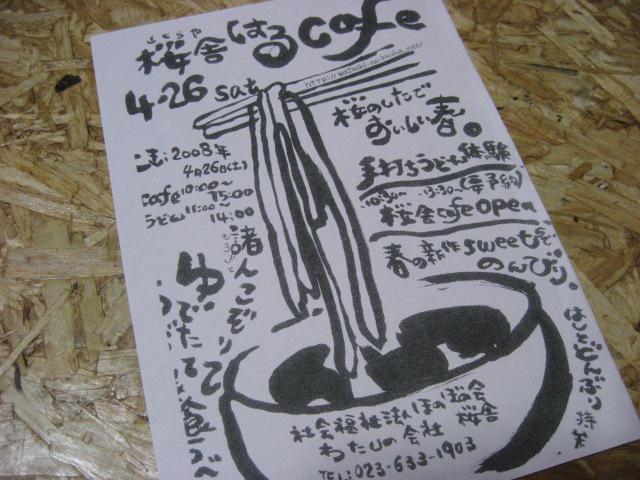 さくらや
桜舎はるcafe
4.26 sat
http://watashi-no-kaisha.net/
桜のしたで
おいしい春。
2008年
4月26日(土)
cafe 10:00〜
15:00
うどん 11:00〜
14:00
手打ちうどん体験
10:30〜 13:30〜(要予約)
桜舎cafe open
春の新作sweetsで
のんびり。
もろびと
諸人こぞりて
ゆでたて
食うべ
はしとどんぶり持参
社会福祉法人ほのぼの会
わたしの会社 桜舎
TEL:023-633-1903